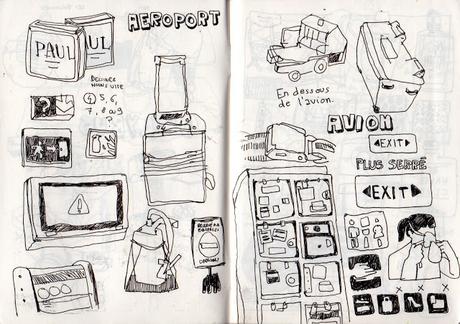 AEROPORT
PAUL
UL
?
④ 5, 6,
7, 8 où 9
?
En dessous
de l'avion.
AVION
EXIT
PLUS SERRÉ
EXIT